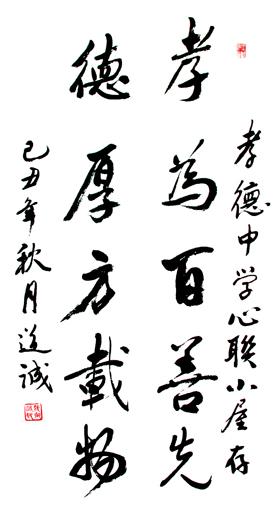 孝德中学心聯小屋存
孝為百善先
德厚方載物
己丑年秋月誠